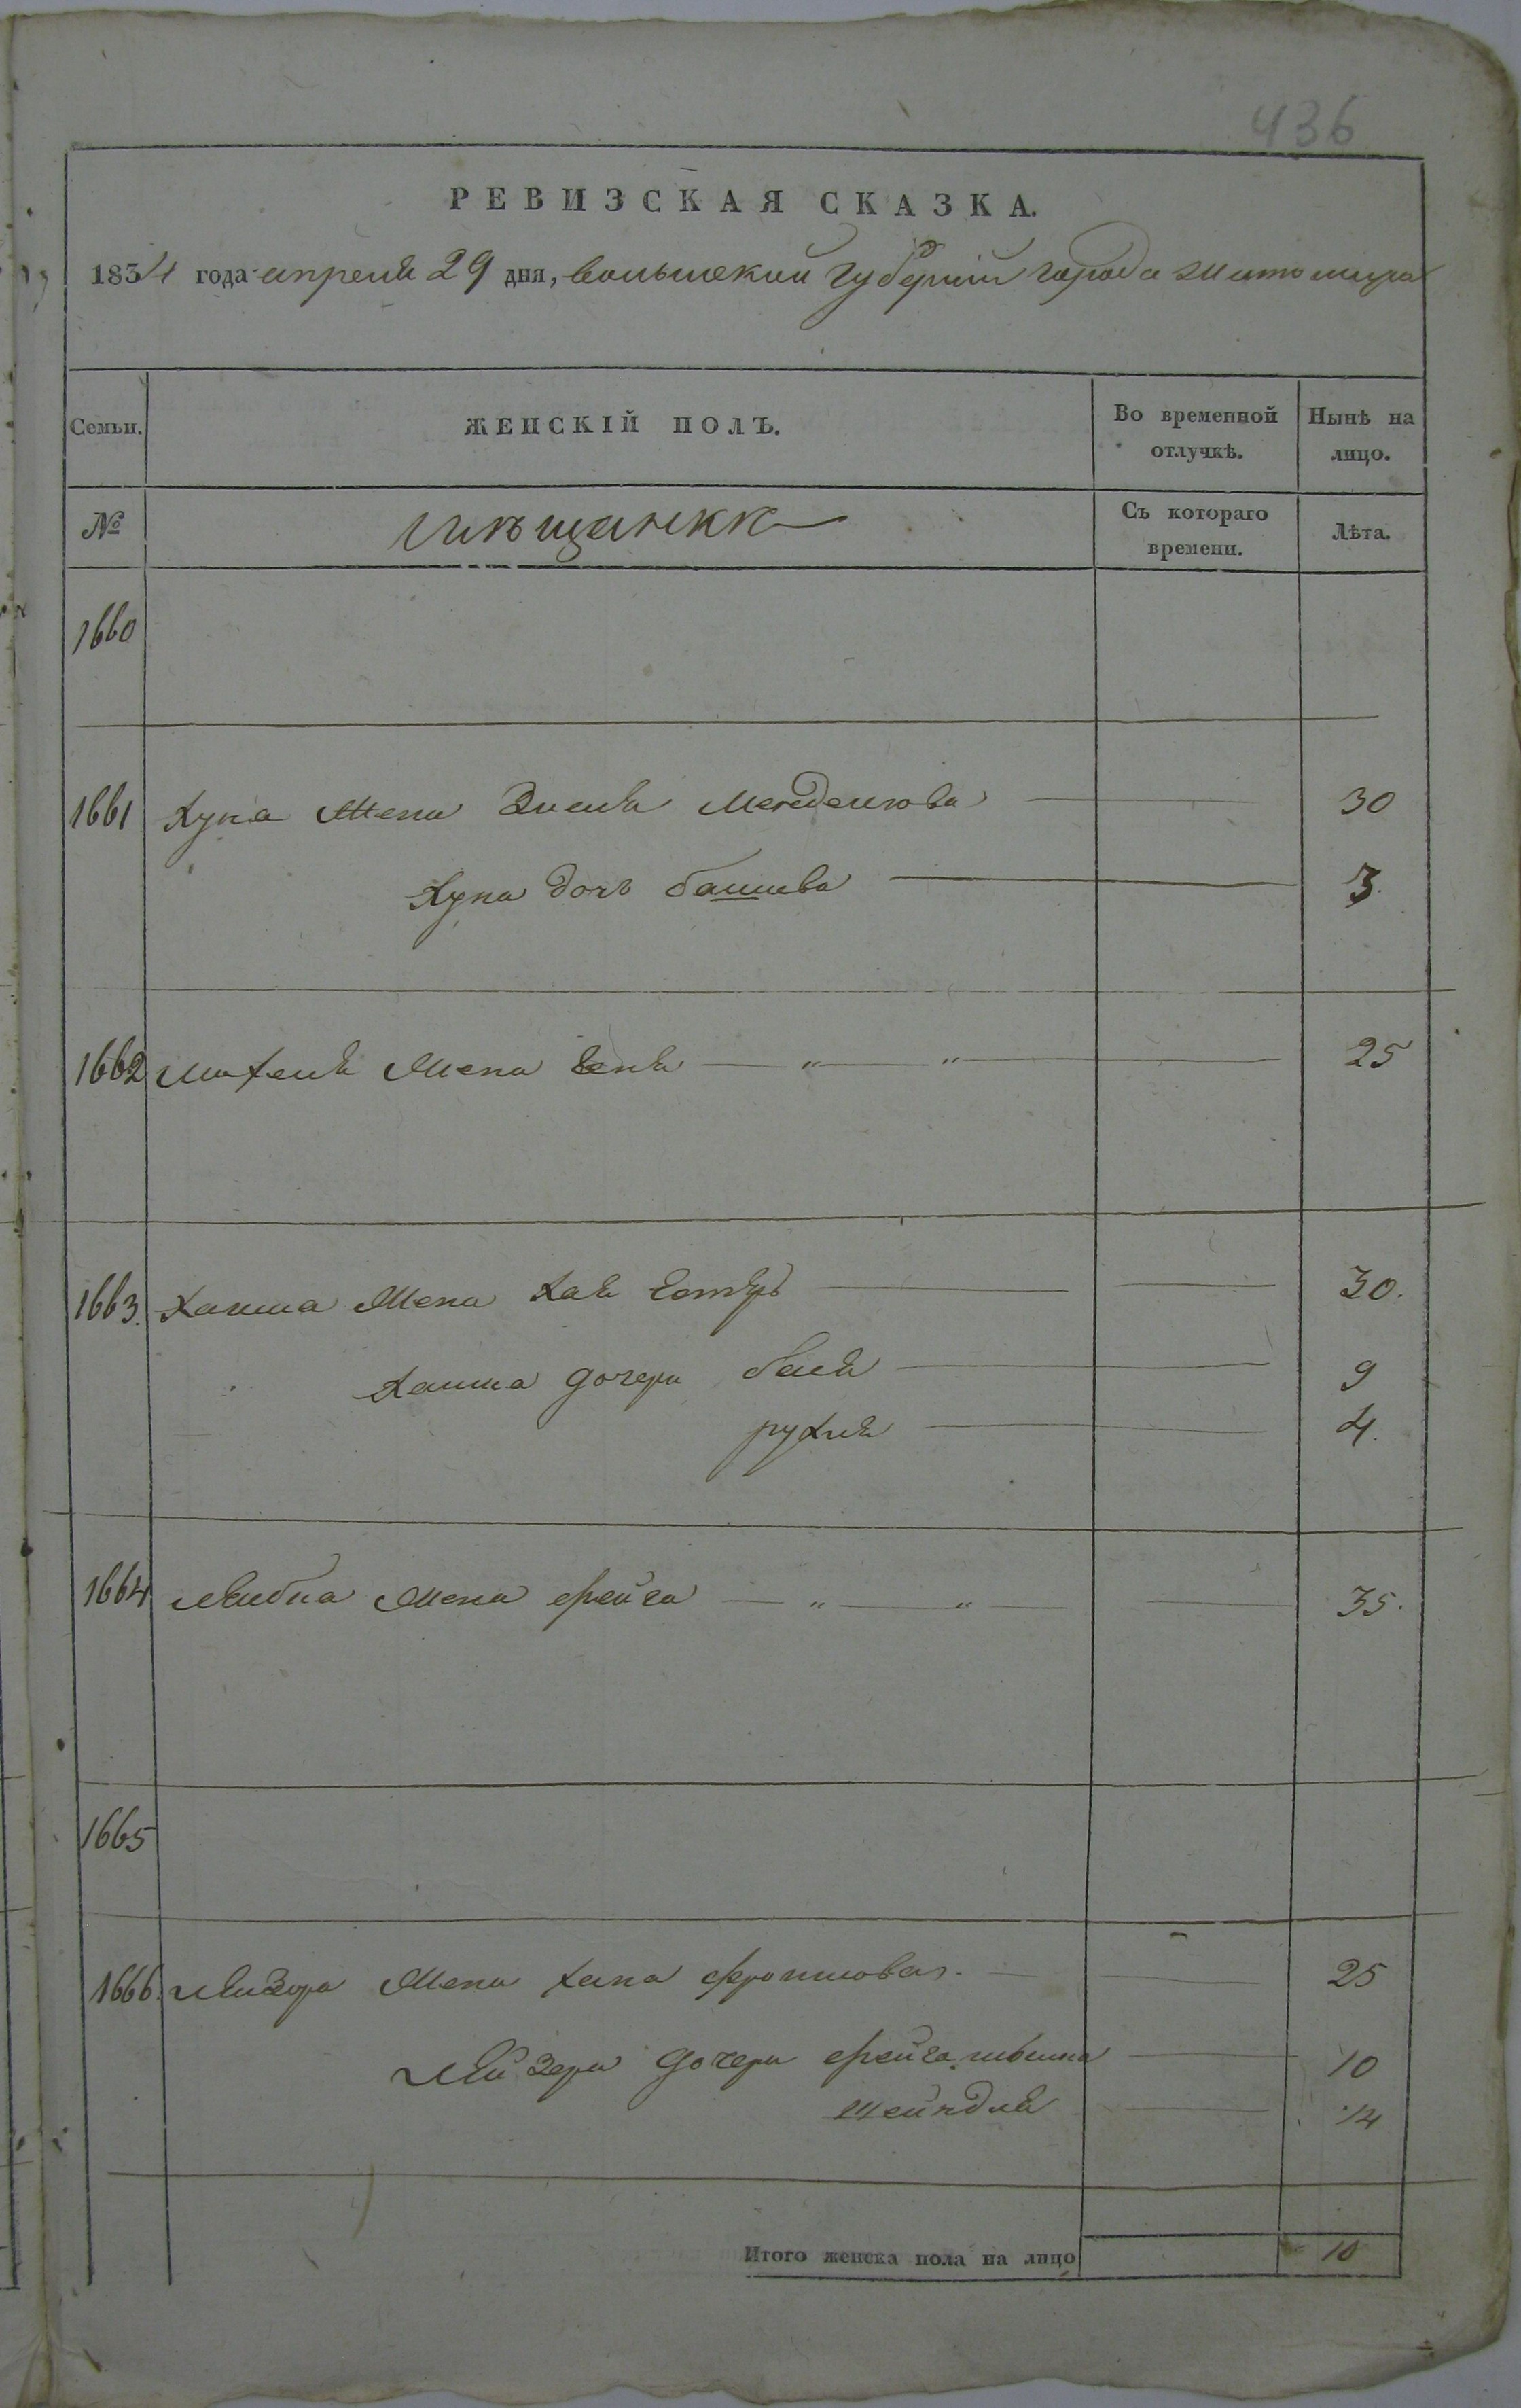 436
РЕВИЗСКАЯ СКАЗКА.
1834 года апреля 29 дня, волынской губернии города житомира
Семьи. ЖЕНСКІЙ ПОЛЪ. Во временной отлучкѣ. Нынѣ на лицо.
№ мѣщанки Съ котораго времени. Лѣта.
1660
1661 Хуна жена Менделиова 30
Хуна дочь башева 3.
1662 жена 25
1663. Хаима жена Хая Естеръ 30.
Хаима дочери бася 9
рухля 4.
1664 Лейбка жена фейга 35.
1665
1666. Лейзора жена хана 25
Лейзера дочери фейга 10
шейндля 14
Итого женска пола на лицо 10